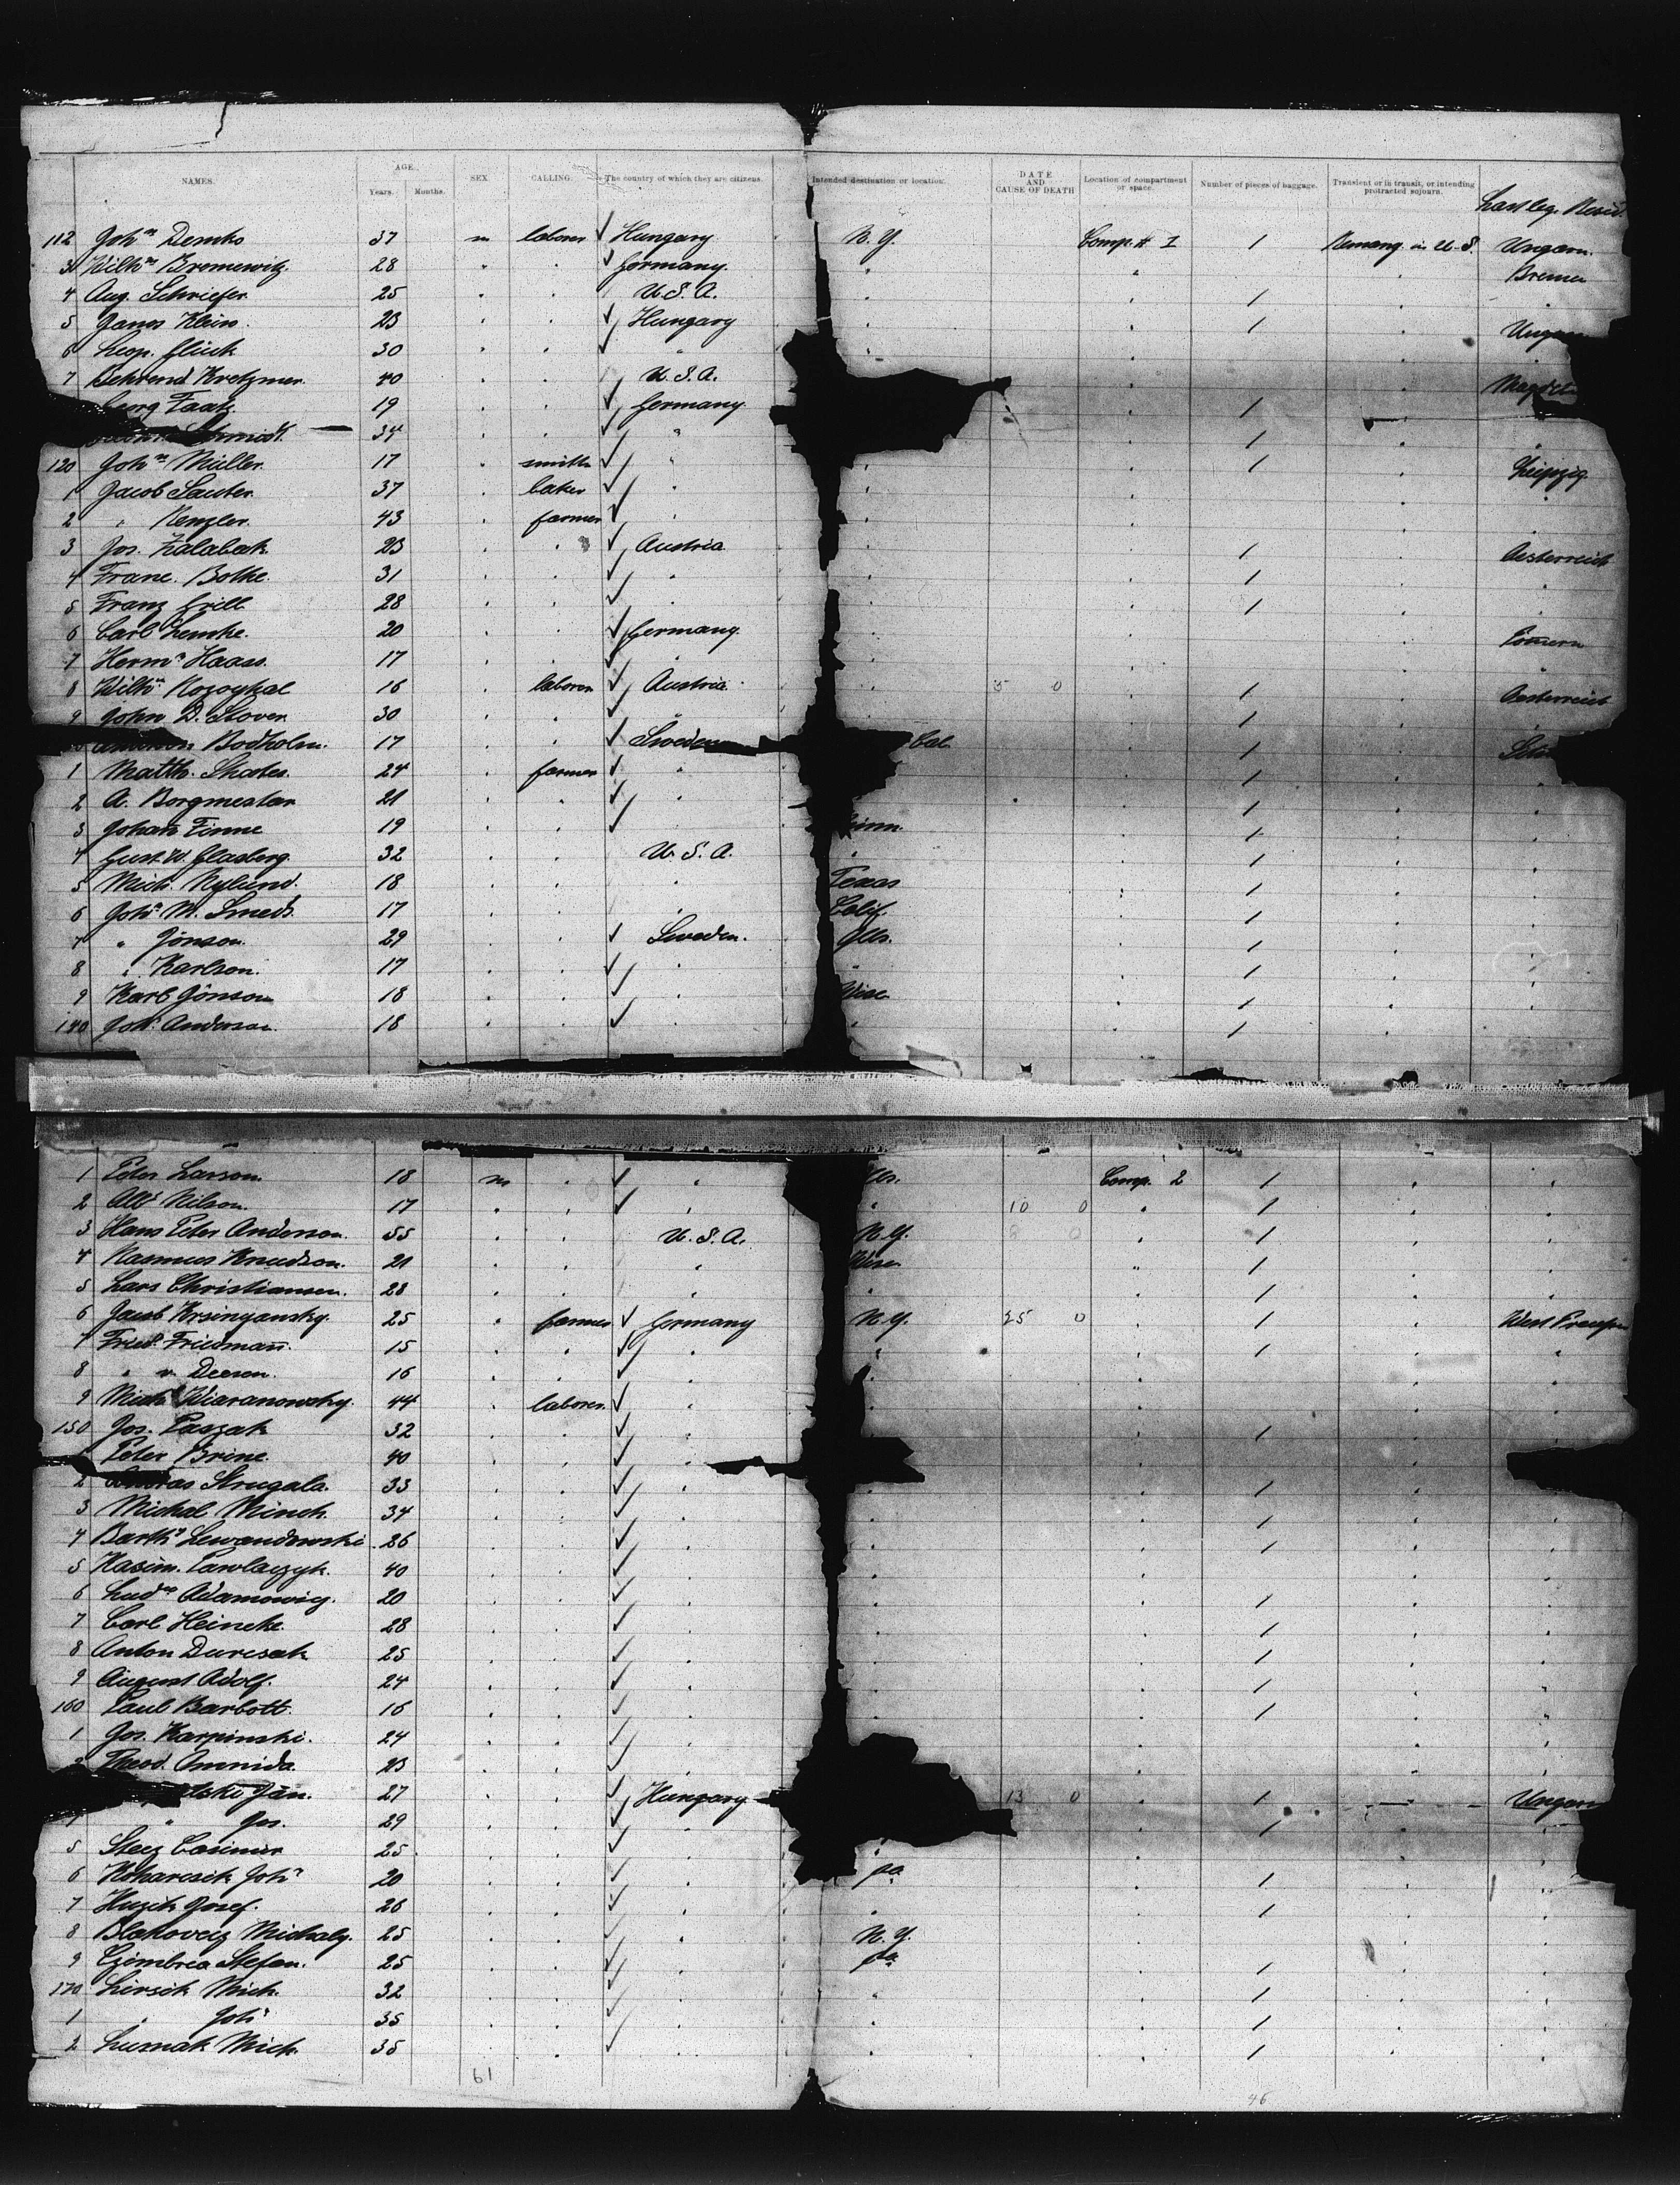 NAMES. AGE. Years. Months. SEX. CALLING. The country of which they are citizens. Intended destination or location. DATE AND CAUSE OF DEATH Location of compartment or space. Number of pieces of baggage. Transient or in transit, or intending protracted sojourn. Last leg. Resid.
112 Joh^n Demko 37 m laborer ✓ Hungary N. Y. Comp. # 1 1 Remang in U. S. Ungarn.
3 Wilh^m 28 " " ✓ Germany. " " Bremen
4 Aug. Schriefer 25 " " U. S. A. " " 1 " "
5 Janos Klein. 23 " " ✓ Hungary " " 1 "
6 Leop. Glück 30 " " ✓ " " "
7 Behrend Kretzmer. 40 " " U. S. A. "
Georg 19 " " ✓ Germany " 1 "
Schmidt. 34 " " ✓ " " 1 " "
120 Joh^n Müller. 17 " smith ✓ " " " 1 " Leipzig.
1 Jacob Sauter 37 " baker ✓ " " " " "
2 " Kenzler. 43 " farmer ✓ " " " "
3 Jos. Kalabak 23 " " ✓ Austria " " 1 " Oesterreich
4 Franc. Bolke. 31 " " ✓ " " " 1 " "
5 Franz Grill 28 " " ✓ " " " 1 " "
6 Carl Lemke. 20 " " ✓ Germany. " " " Pomern
7 Herm^n Haass. 17 " " ✓ " " " " "
8 Wilh^m 16 " laborer ✓ Austria " 5 0 " 1 " Oesterreich
9 John D. Stover 30 " " ✓ " " " 1 " "
Bodholm. 17 " " ✓ Sweden Cal. " 1 "
1 Matth. 24 " farmer ✓ " " 1 " "
2 A. Borgmestar 21 " " ✓ " " 1 " "
3 Johan Finne 19 " " ✓ " 1 " "
4 Gust. W. Glasberg. 32 " " U. S. A. " " 1 " "
5 Mich. Nylund. 18 " " " Texas " 1 " "
6 Joh^n M. Smeds. 17 " " " Calif. " 1 " "
7 " Jönson. 29 " " ✓ Sweden. Ills. " 1 " "
8 " Karlson. 17 " " ✓ " " " 1 " "
9 Karl Jönson 18 " " ✓ " Wisc. " 1 " "
140 Joh^n Anderson. 18 " " ✓ " " " 1 " "
1 Peter Larson. 18 m " ✓ " Ills. Comp. 2 1 " "
2 Alb^t Nilson. 17 " " ✓ " " 10 0 " 1 " "
3 Hans Peter Anderson. 55 " " U. S. A. N. Y. 0 " 1 " "
4 Rasmus Knudson. 21 " " " Wisc. " 1 " "
5 Lars Christiansen. 28 " " " " " 1 " "
6 Jacob Krsinyansky. 25 " farmer ✓ Germany N. Y. 25 0 " 1 " West
7 Fried. Friedman. 15 " " ✓ " " " 1 " "
8 " v. Deesen. 16 " " ✓ " " " " "
9 Mich^l Wiaranowsky. 44 " laborer. ✓ " " " " "
150 Jos. Paszak 32 " " ✓ " " " 1 " "
Peter Brine. 40 " " ✓ " " "
2 Strugala. 33 " " ✓ " " " 1 "
3 Michal Minch. 34 " " ✓ " " " 1 " "
4 Barth^s Lewandowski 26 " " ✓ " " " 1 " "
5 Kasim. Pawlaczyk. 40 " " ✓ " " " " "
6 Lud^w Adamowicz. 20 " " ✓ " " " 1 " "
7 Carl Heincke. 28 " " ✓ " " " 1 " "
8 Anton Durcsak 25 " " ✓ " " " 1 " "
9 August Adolf. 24 " " ✓ " " " 1 " "
160 Paul Barbott. 16 " " ✓ " " " 1 " "
1 Jos. Karpinski. 24 " " ✓ " " " "
2 Theod. Omnida. 23 " " ✓ " " " "
Jan. 27 " " ✓ Hungary 13 0 " 1 Ungarn
" Jos. 29 " " ✓ " 1 " "
5 Stecz Casimir 25 " " ✓ " " " " "
6 Koharcsik Joh^n 20 " " ✓ " pa " 1 " "
7 Huzik Josef. 26 " " ✓ " " " 1 " "
8 Blahovecz Michaly. 25 " " ✓ " N. Y. " " "
9 Czombrea Stefan. 25 " " ✓ " pa " 1 " "
170 Lirsik Mich. 32 " " ✓ " " " 1 " "
1 " Joh^n 35 " " ✓ " " " 1 " "
2 Lusmak Mich. 35 " " ✓ " " " 1 " "
61 46